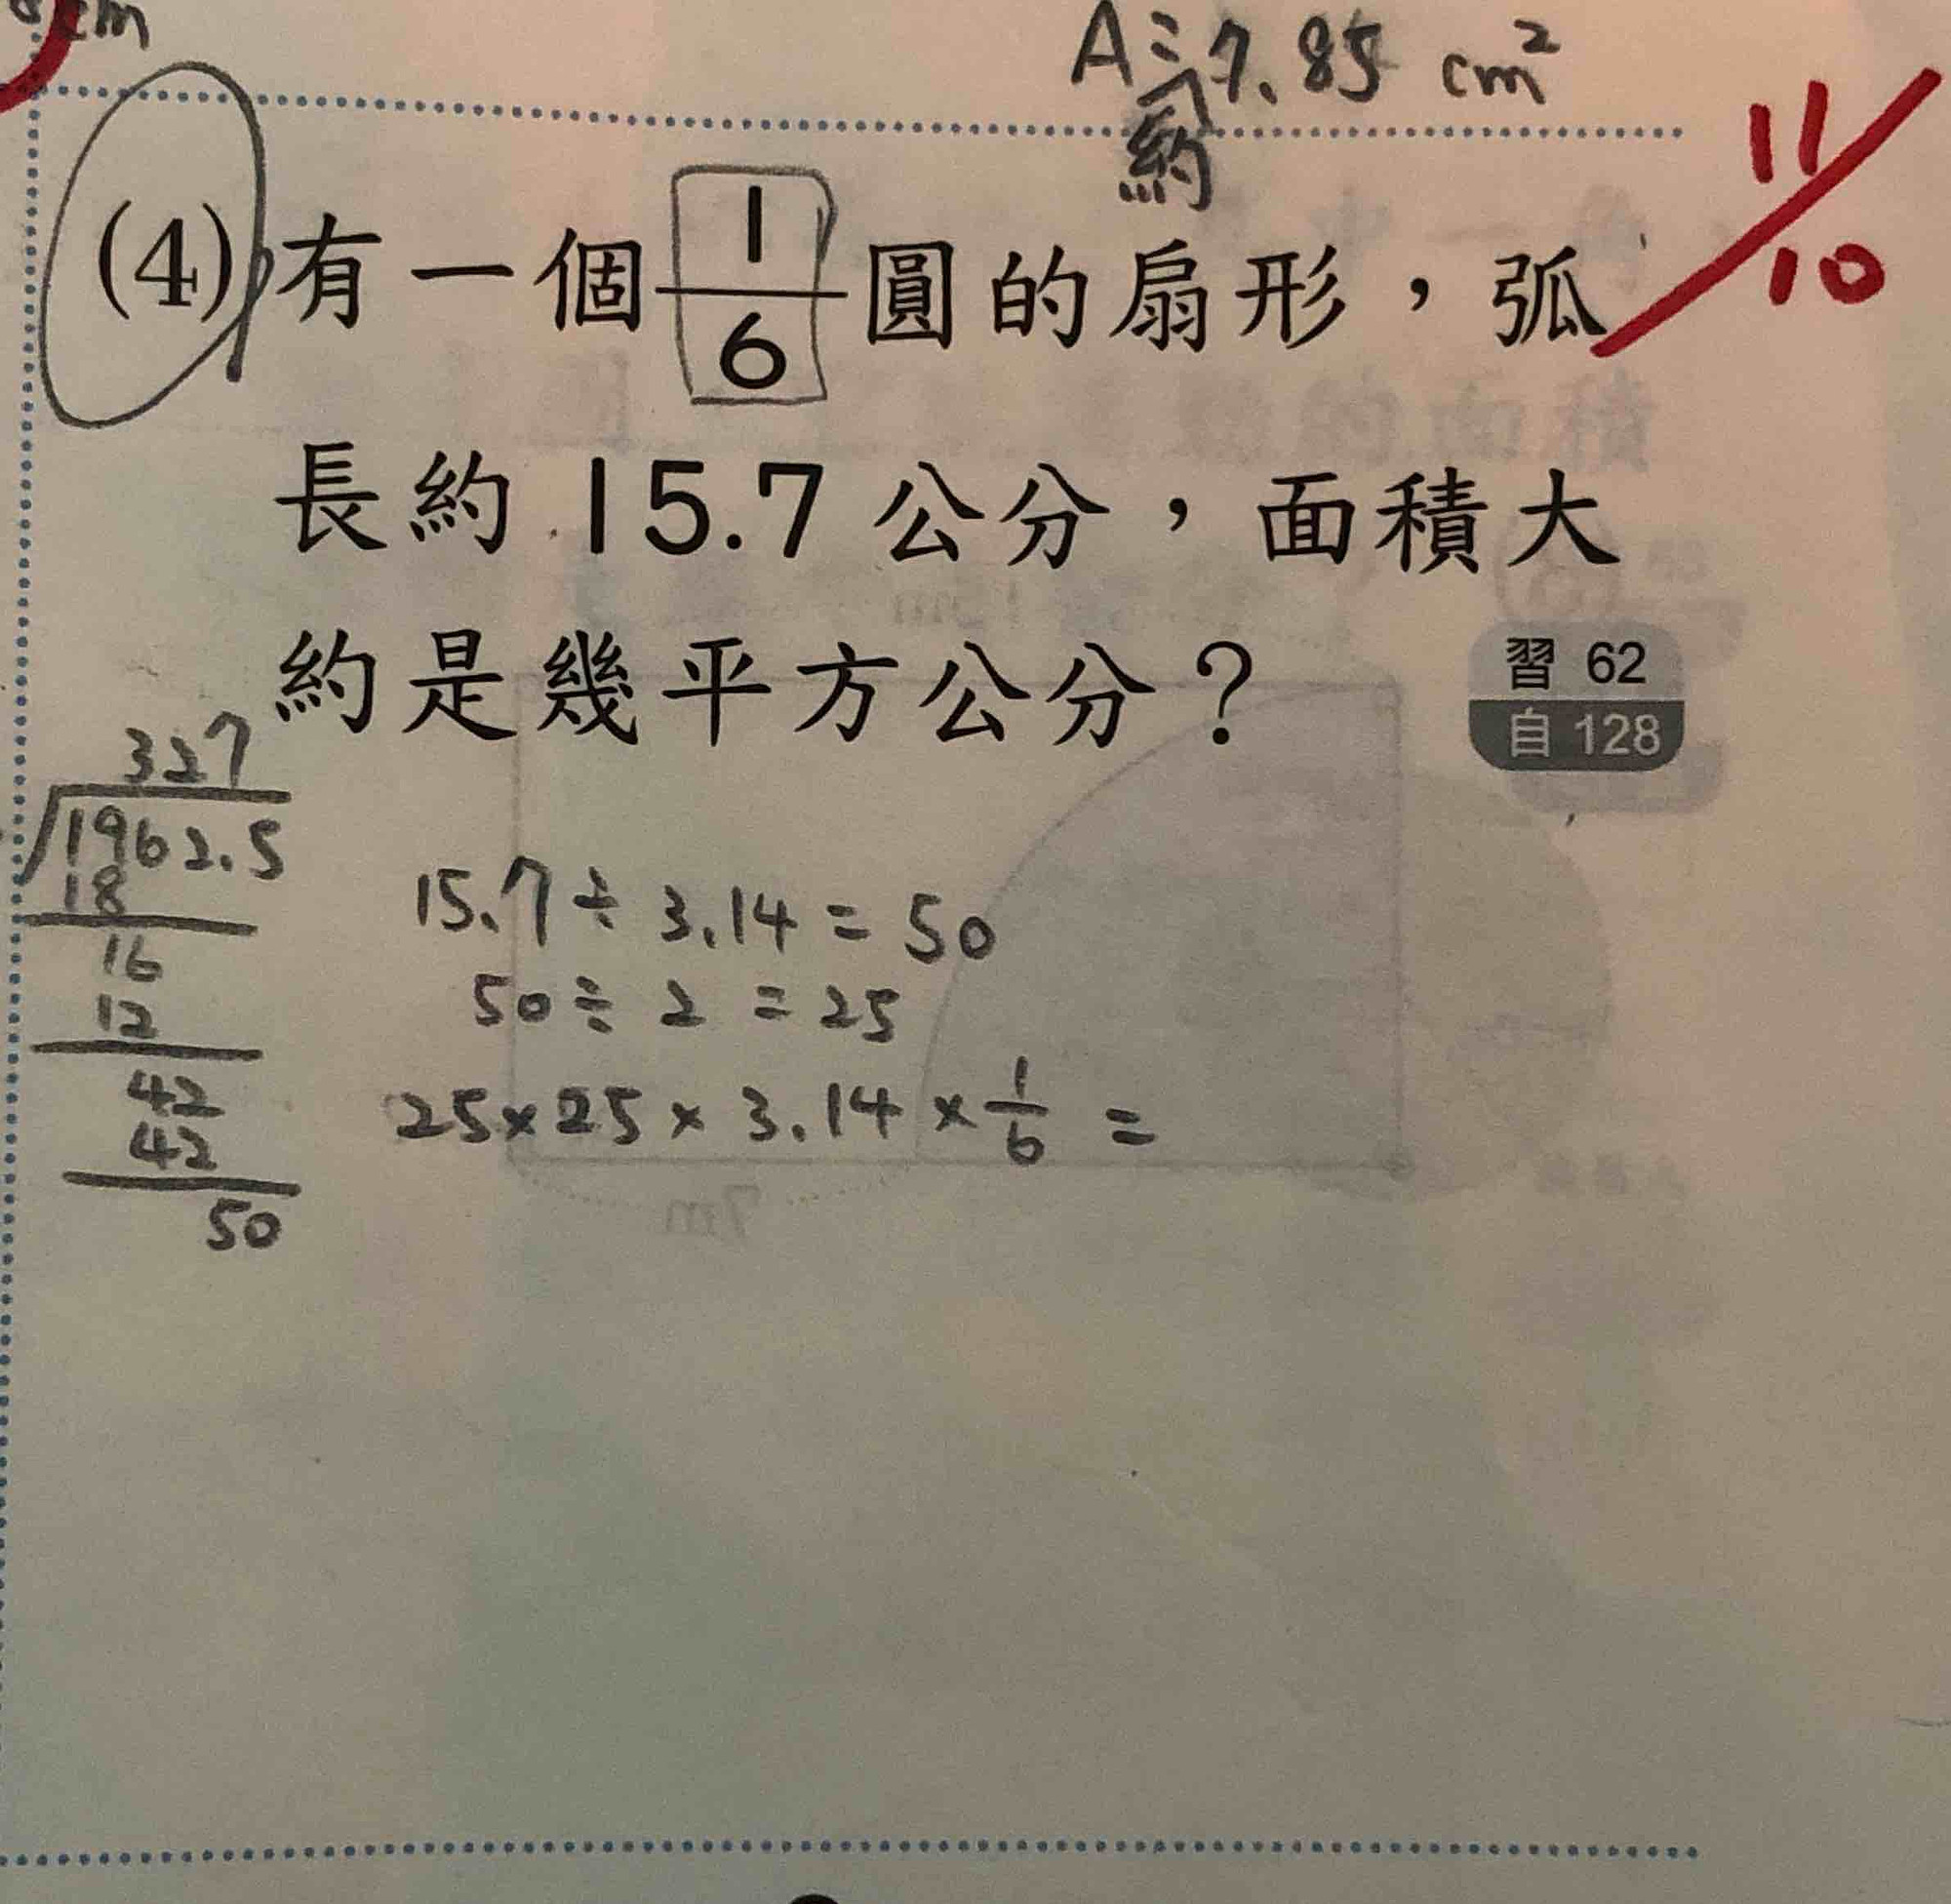 cm
A: 7.85 cm²
約
11/10
(4) 有一個 1/6 圓的扇形，弧
長約 15.7 公分，面積大
約是幾平方公分？
習 62
自 128
327
1962.5
18
16
12
42
42
50
15.7 ÷ 3.14 = 50
50 ÷ 2 = 25
25 × 25 × 3.14 × 1/6 =
7m